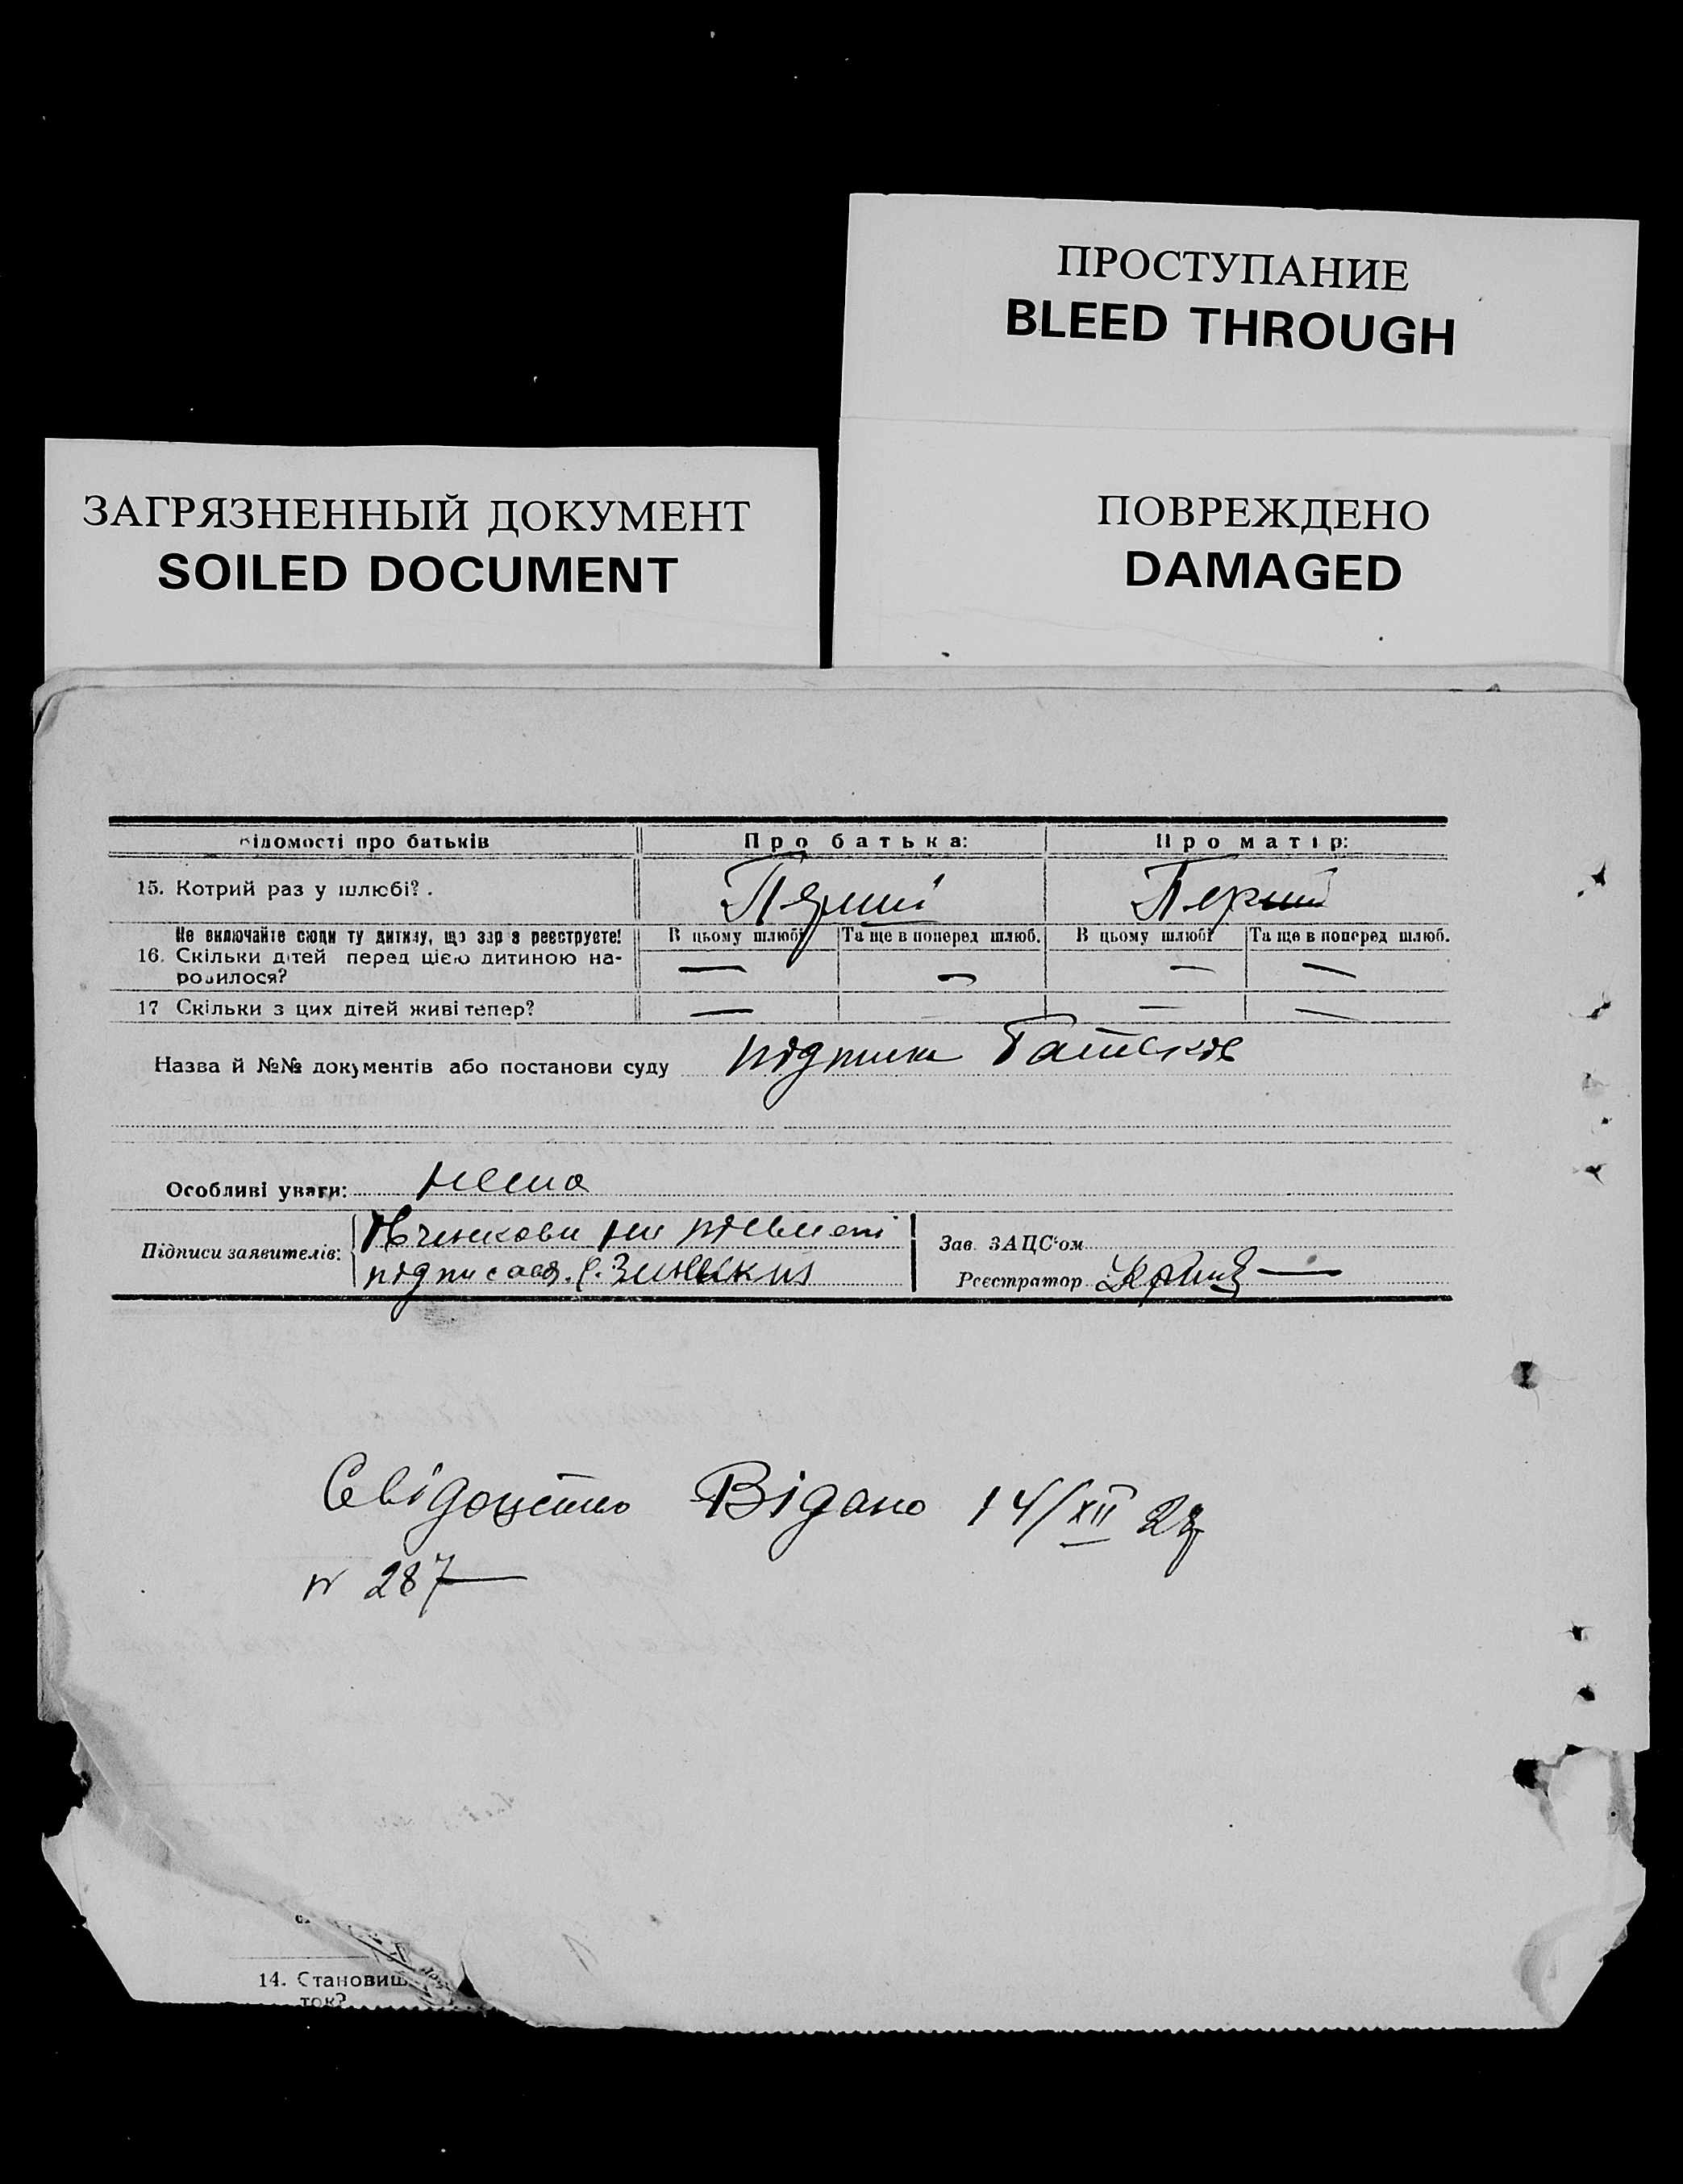 ПРОСТУПАНИЕ
BLEED THROUGH
ЗАГРЯЗНЕННЫЙ ДОКУМЕНТ
SOILED DOCUMENT
ПОВРЕЖДЕНО
DAMAGED
Відомості про батьків Про батька: Про матір:
15. Котрий раз у шлюбі? . Перший Перший
Не включайте сюди ту дитину, що зараз реєструєте! В цьому шлюбі Та ще в поперед шлюб. В цьому шлюбі Та ще в поперед шлюб.
16. Скільки дітей перед цією дитиною на-
родилося? — — — —
17 Скільки з цих дітей живі тепер? — — — —
Назва й №№ документів або постанови суду підписи батьків
Особливі уваги: нема
Підписи заявителів:
підписався
Зав. ЗАЦС'ом
Реєстратор
Свідоцтво Видано 14/XII
N 287
14. Становищ
ток?